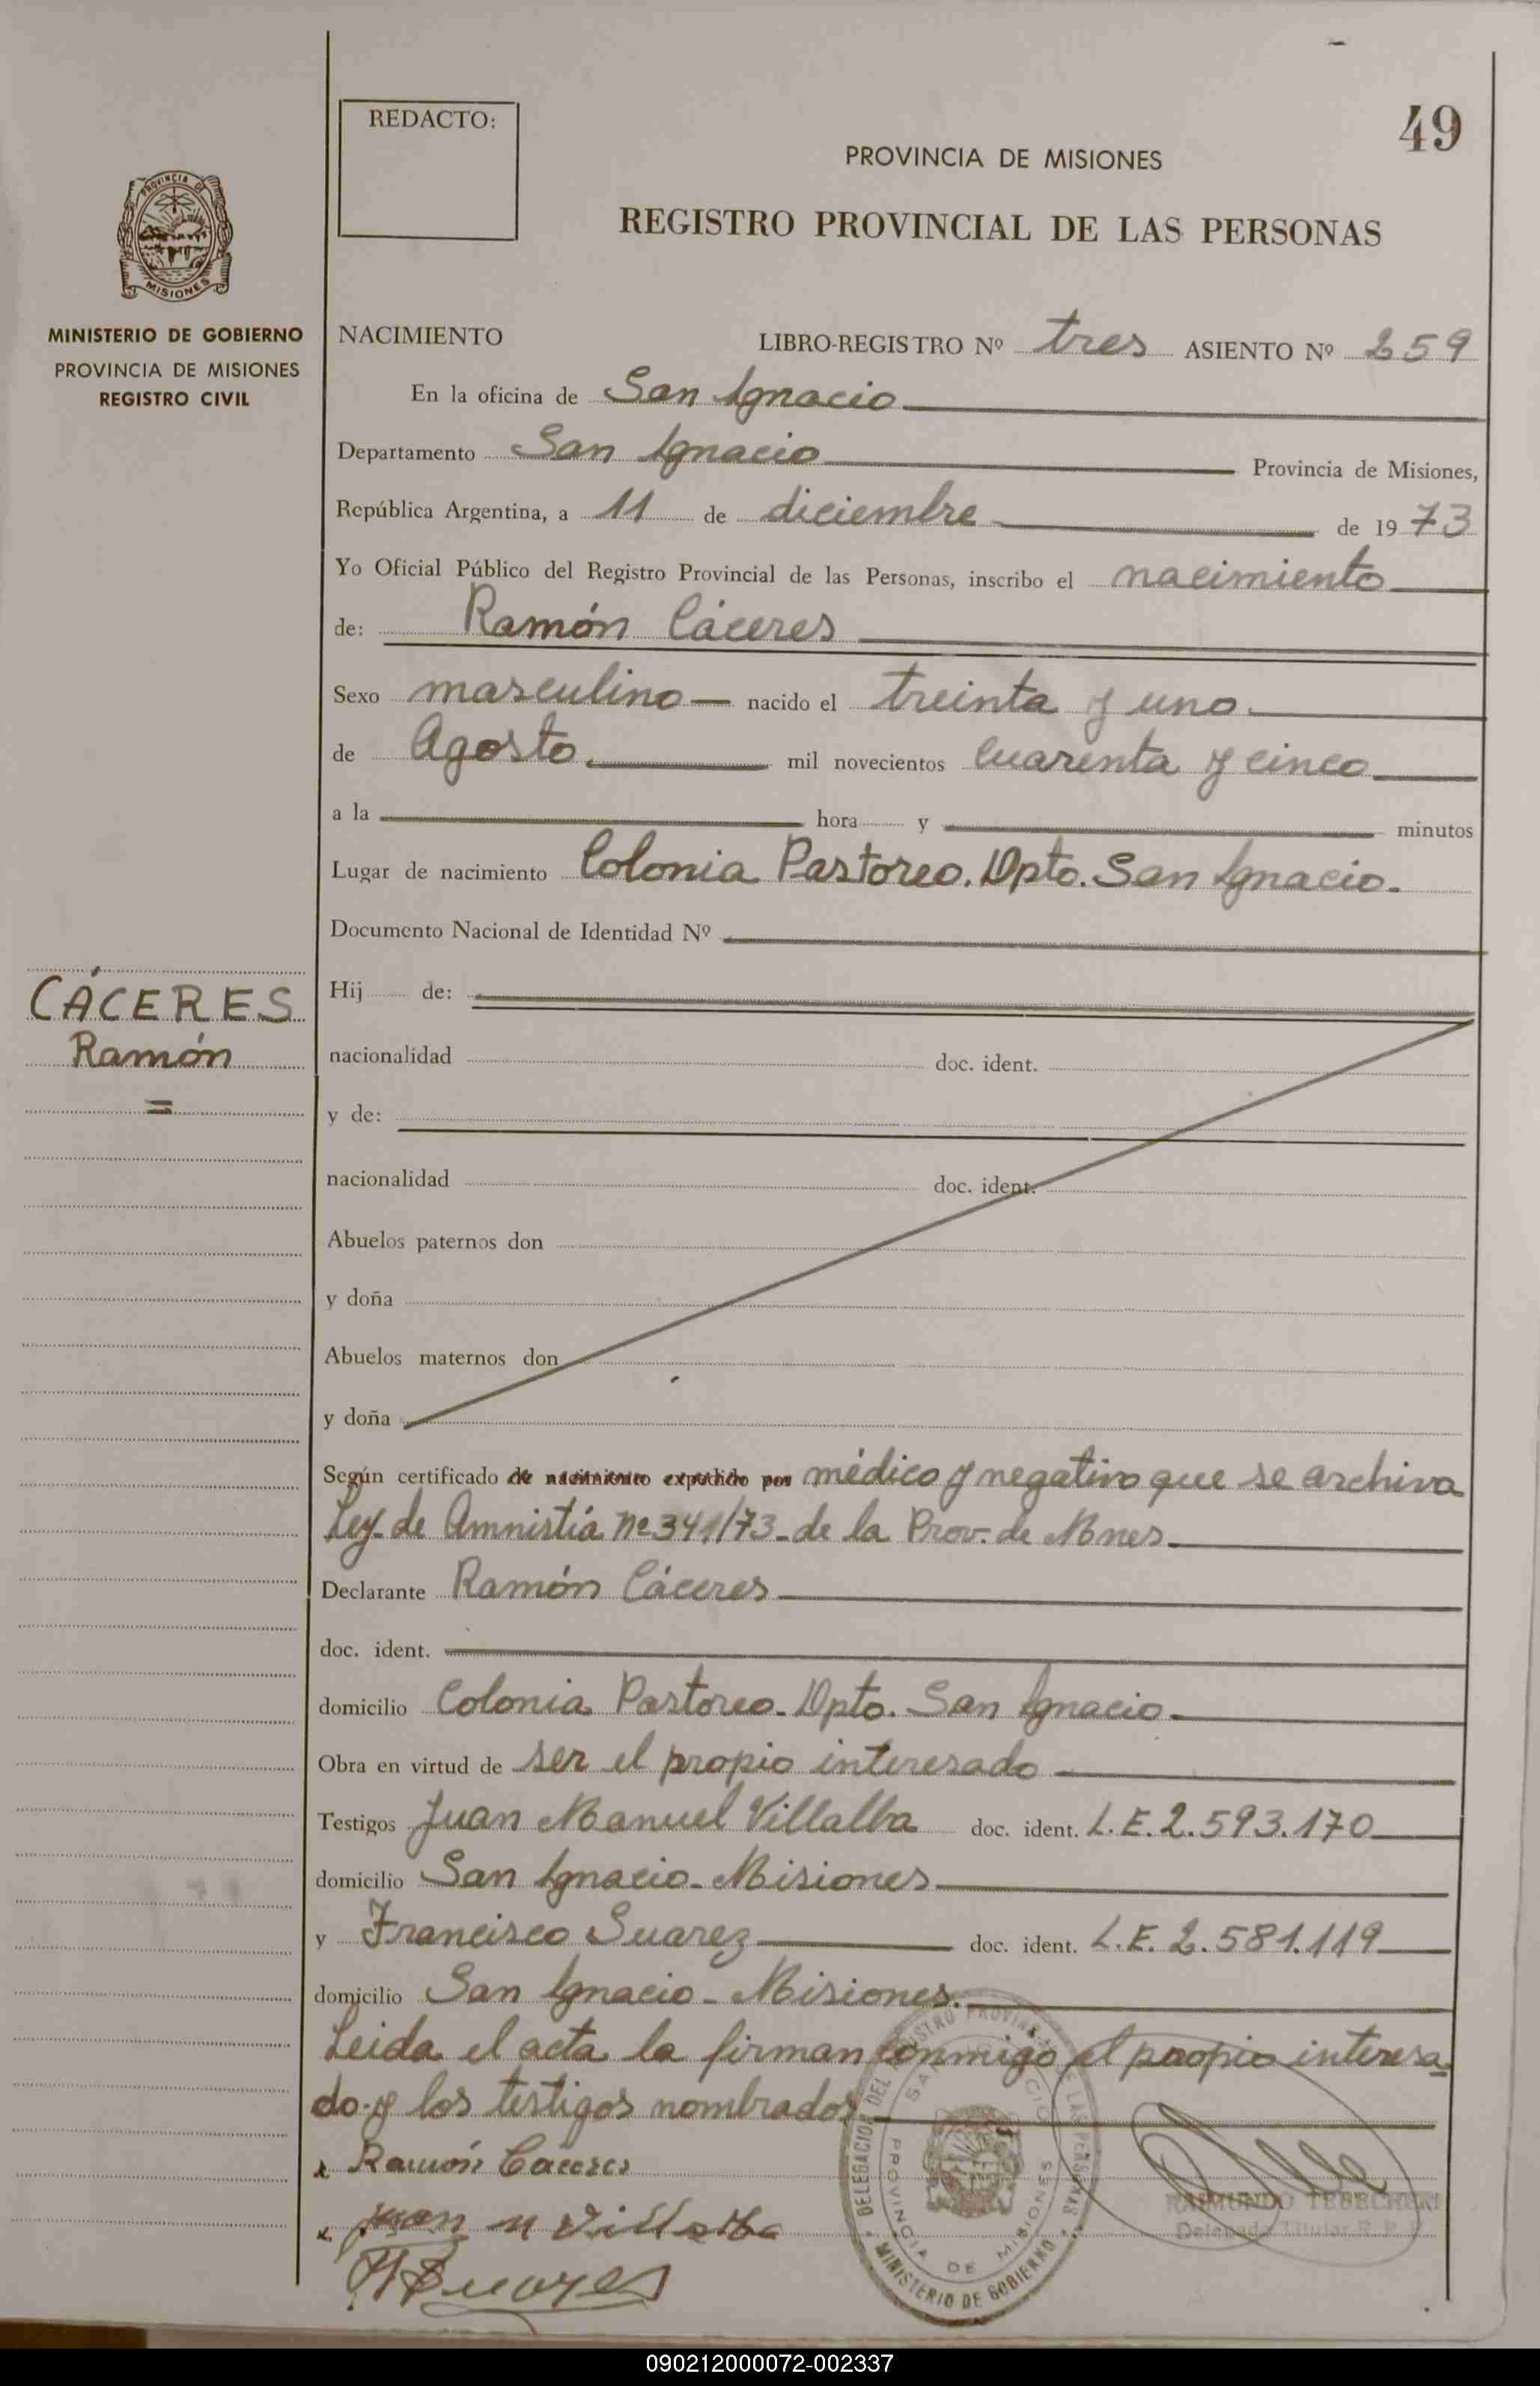 49
REDACTO:
PROVINCIA DE MISIONES
REGISTRO PROVINCIAL DE LAS PERSONAS
PROVINCIA DE
MISIONES
MINISTERIO DE GOBIERNO
PROVINCIA DE MISIONES
REGISTRO CIVIL
NACIMIENTO LIBRO-REGISTRO Nº tres ASIENTO Nº 259
En la oficina de San Ignacio
Departamento San Ignacio Provincia de Misiones,
República Argentina, a 11 de diciembre de 1973
Yo Oficial Público del Registro Provincial de las Personas, inscribo el nacimiento
de: Ramón Cáceres
Sexo masculino — nacido el treinta y uno.
de Agosto. mil novecientos cuarenta y cinco
a la hora y minutos
Lugar de nacimiento Colonia Pastoreo. Dpto. San Ignacio.
Documento Nacional de Identidad Nº
CÁCERES
Ramón
=
Hij de:
nacionalidad doc. ident.
y de:
nacionalidad doc. ident.
Abuelos paternos don
y doña
Abuelos maternos don
y doña
Según certificado de nacimiento expedido por médico y negativo que se archiva
Ley de Amnistía nº 341/73 - de la Prov. de Mnes.
Declarante Ramón Cáceres
doc. ident.
domicilio Colonia Pastoreo. Dpto. San Ignacio.
Obra en virtud de ser el propio interesado
Testigos Juan Manuel Villalba doc. ident. L.E. 2.593.170
domicilio San Ignacio - Misiones
y Francisco Suarez doc. ident. L.E. 2.581.119
domicilio San Ignacio - Misiones.
Leida el acta la firman conmigo el propio interesa
do y los testigos nombrados
x Ramón Cáceres
x Juan M Villalba
Suarez
DELEGACION DEL REGISTRO PROVINCIAL DE LAS PERSONAS
SAN IGNACIO
PROVINCIA DE MISIONES
MINISTERIO DE GOBIERNO
RAIMUNDO
Delegado Titular R. P. P.
090212000072-002337